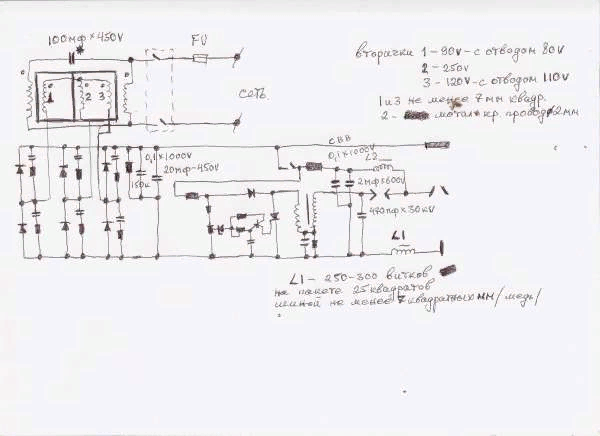 100мф × 450v
FU
сеть
вторички 1 - 90v - с отводом 80v
2 - 250v
3 - 120v - с отводом 110v
1 и 3 не менее 7 мм квадр.
2 - мотал кр. провод 2 мм
1
2
3
СВВ
0,1 × 1000v
20мф - 450v
150к
0,1 × 1000v
L2
2мф × 600v
470пф × 30кv
L1
L1 - 250 - 300 витков
на пакете 25 квадратов
шиной не менее 7 квадратных мм / медь /